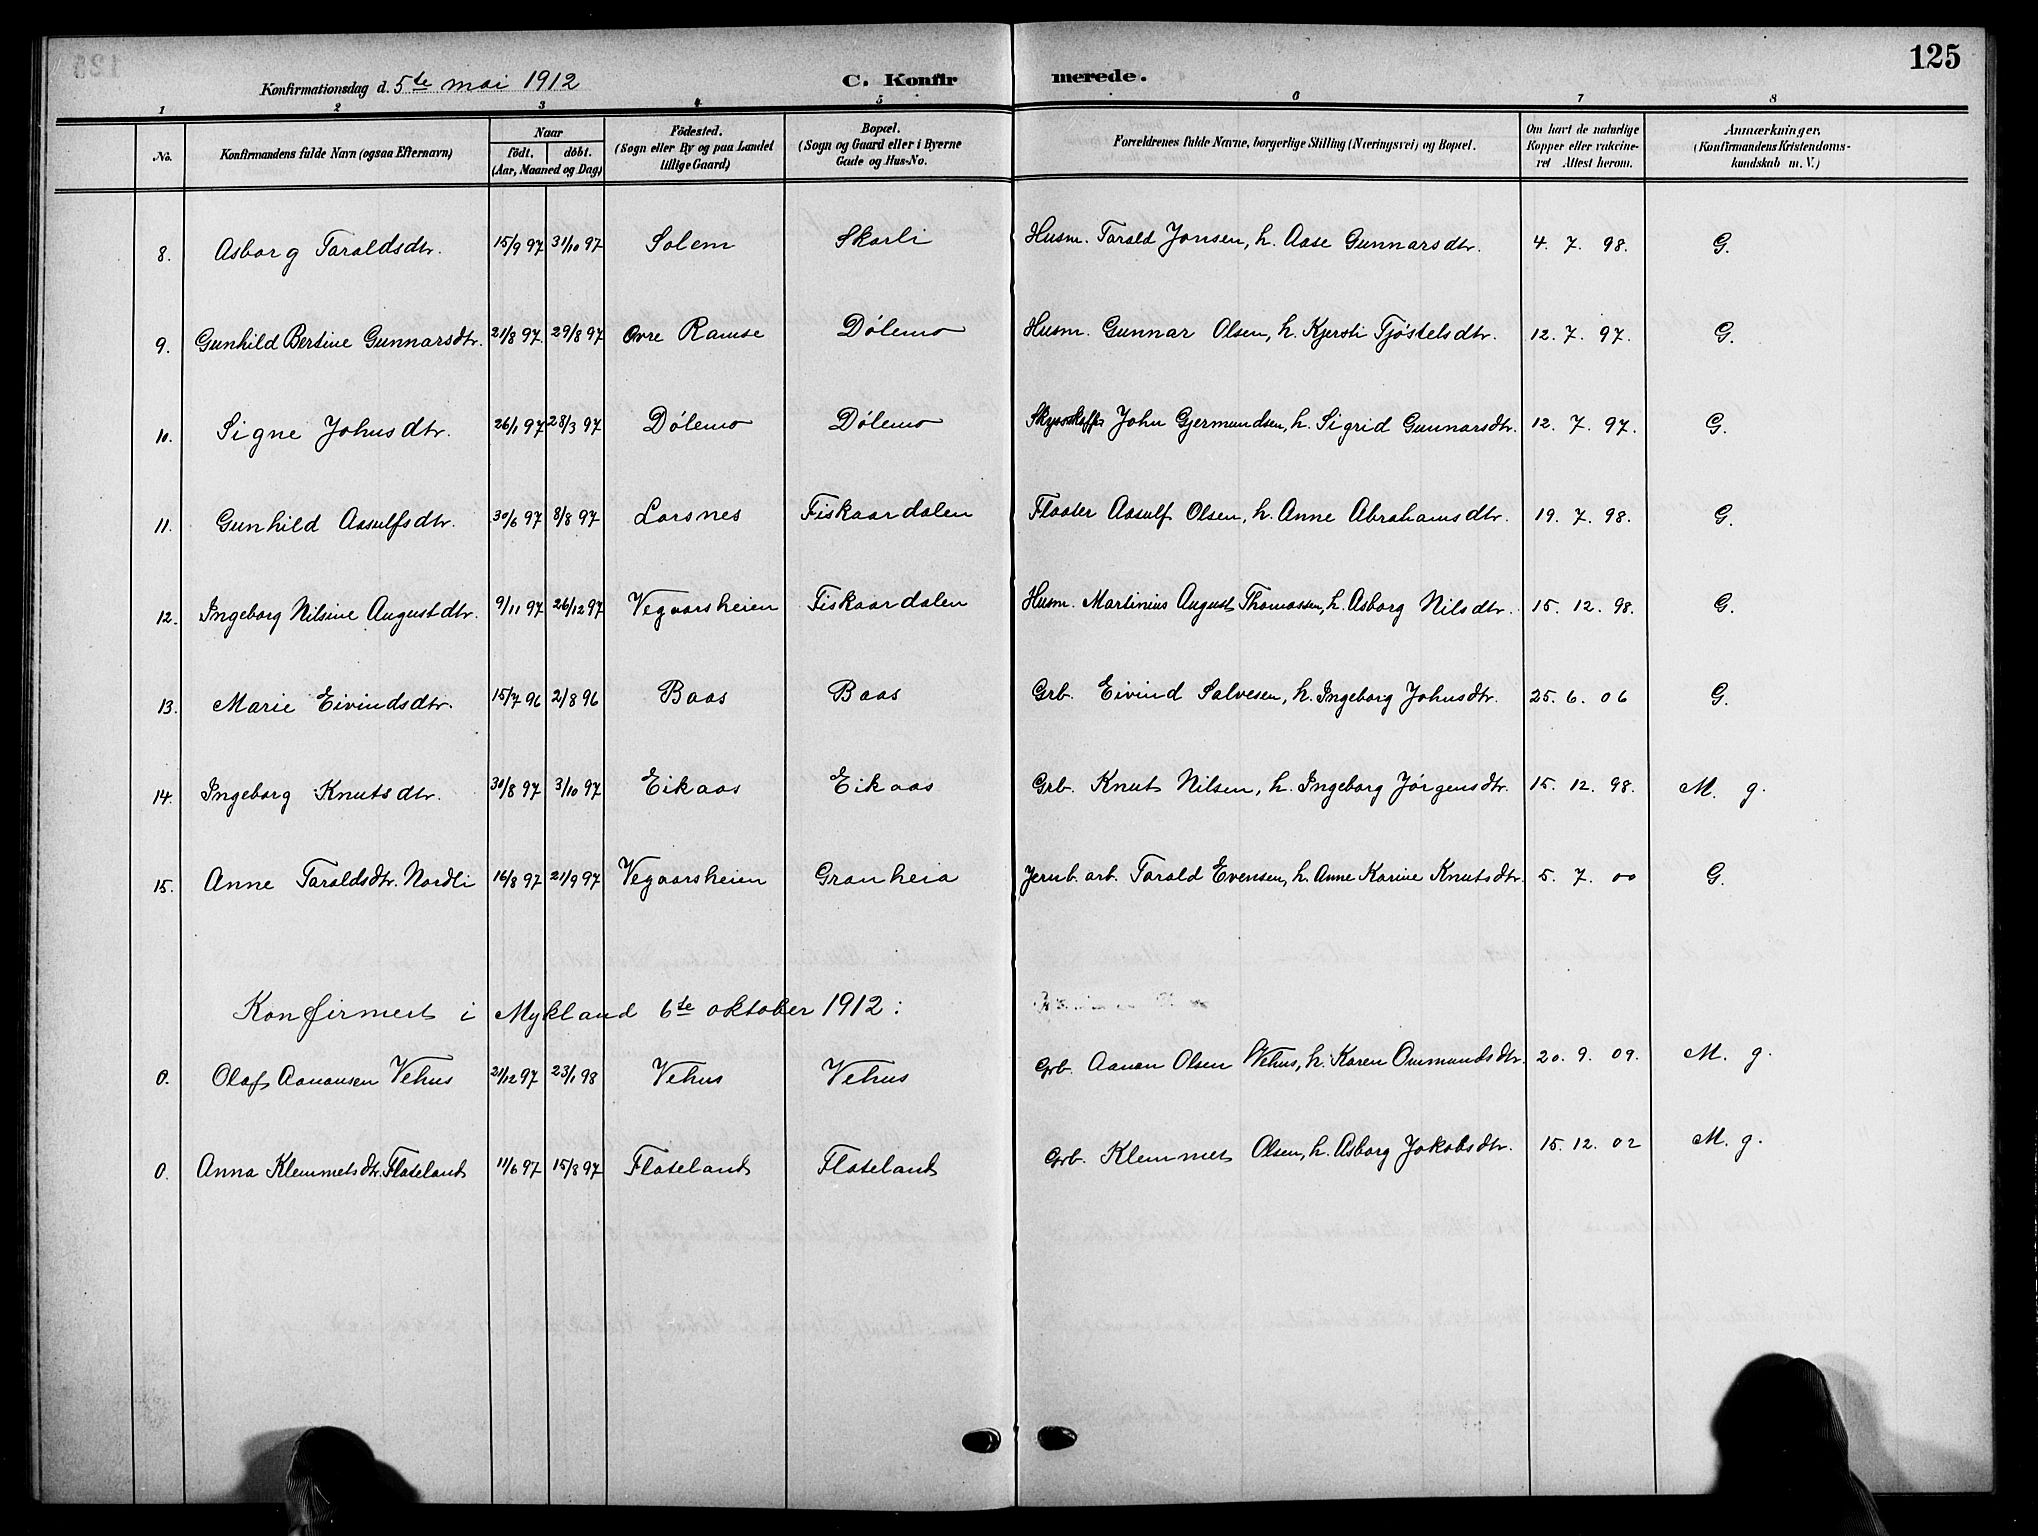 125
Konfirmationsdag d. 5te mai 1912 C. Konfirmerede.
1 2 3 4 5 6 7 8
No. Konfirmandens fulde Navn (ogsaa Efternavn) Naar født. døbt. (Aar, Maaned og Dag) Fødested. (Sogn eller By og paa Landet tillige Gaard) Bopæl. (Sogn og Gaard eller i Byerne Gade og Hus-No. Forældrenes fulde Navne, borgerlige Stilling (Næringsvei) og Bopæl. Om havt de naturlige Kopper eller vakcineret Attest herom. Anmærkninger. (Konfirmandens Kristendomskundskab m. V.)
8. Asborg Taraldsdtr. 15/9 97 31/10 97 Solem Skarli Husm. Tarald Jonsen, h. Aase Gunnarsdtr. 4. 7. 98. G.
9. Gunhild Bertine Gunnarsdtr. 21/8 97. 29/8 97 Øvre Ramse Dølemo Husm. Gunnar Olsen, h. Kjersti Tjøstelsdtr. 12. 7. 97. G.
10. Signe Johnsdtr. 26/1 97 28/3 97 Dølemo Dølemo Skysskaffer John Gjermundsen, h. Sigrid Gunnarsdtr. 12. 7. 97. G.
11. Gunhild Aasulfsdtr. 30/6 97 8/8 97 Larsnes Fiskaardalen Fløter Aasulf Olsen, h. Anne Abrahamsdtr. 19. 7. 98. G.
12. Ingeborg Nilsine Augustdtr. 9/11 97 26/12 97 Vegaarsheien Fiskaardalen Husm. Martinius August Thomassen, h. Asborg Nilsdtr. 15. 12. 98. G.
13. Marie Eivindsdtr. 15/7 96 2/8 96 Baas Baas Grb. Eivind Salvesen, h. Ingeborg Johnsdtr. 25. 6. 06 G.
14. Ingeborg Knutsdtr. 30/8 97 3/10 97 Eikaas Eikaas Grb. Knut Nilsen, h. Ingeborg Jørgensdtr. 15. 12. 98. M. g.
15. Anne Taraldsdtr. Nordli 16/8 97 21/9 97 Vegaarsheien Granheia Jernb. arb. Tarald Evensen, h. Anne Karine Knutsdtr. 5. 7. 00 G.
Konfirmert i Mykland 6te oktober 1912:
0. Olaf Aanansen Vehus 21/12 97 23/1 98 Vehus Vehus Grb. Aanan Olsen Vehus, h. Karen Ommundsdtr. 20. 9. 09. M. g.
0. Anna Klemmetsdtr. Flateland 11/6 97 15/8 97 Flateland Flateland Grb. Klemmet Olsen, h. Asborg Jakobsdtr. 15. 12. 02 M. g.